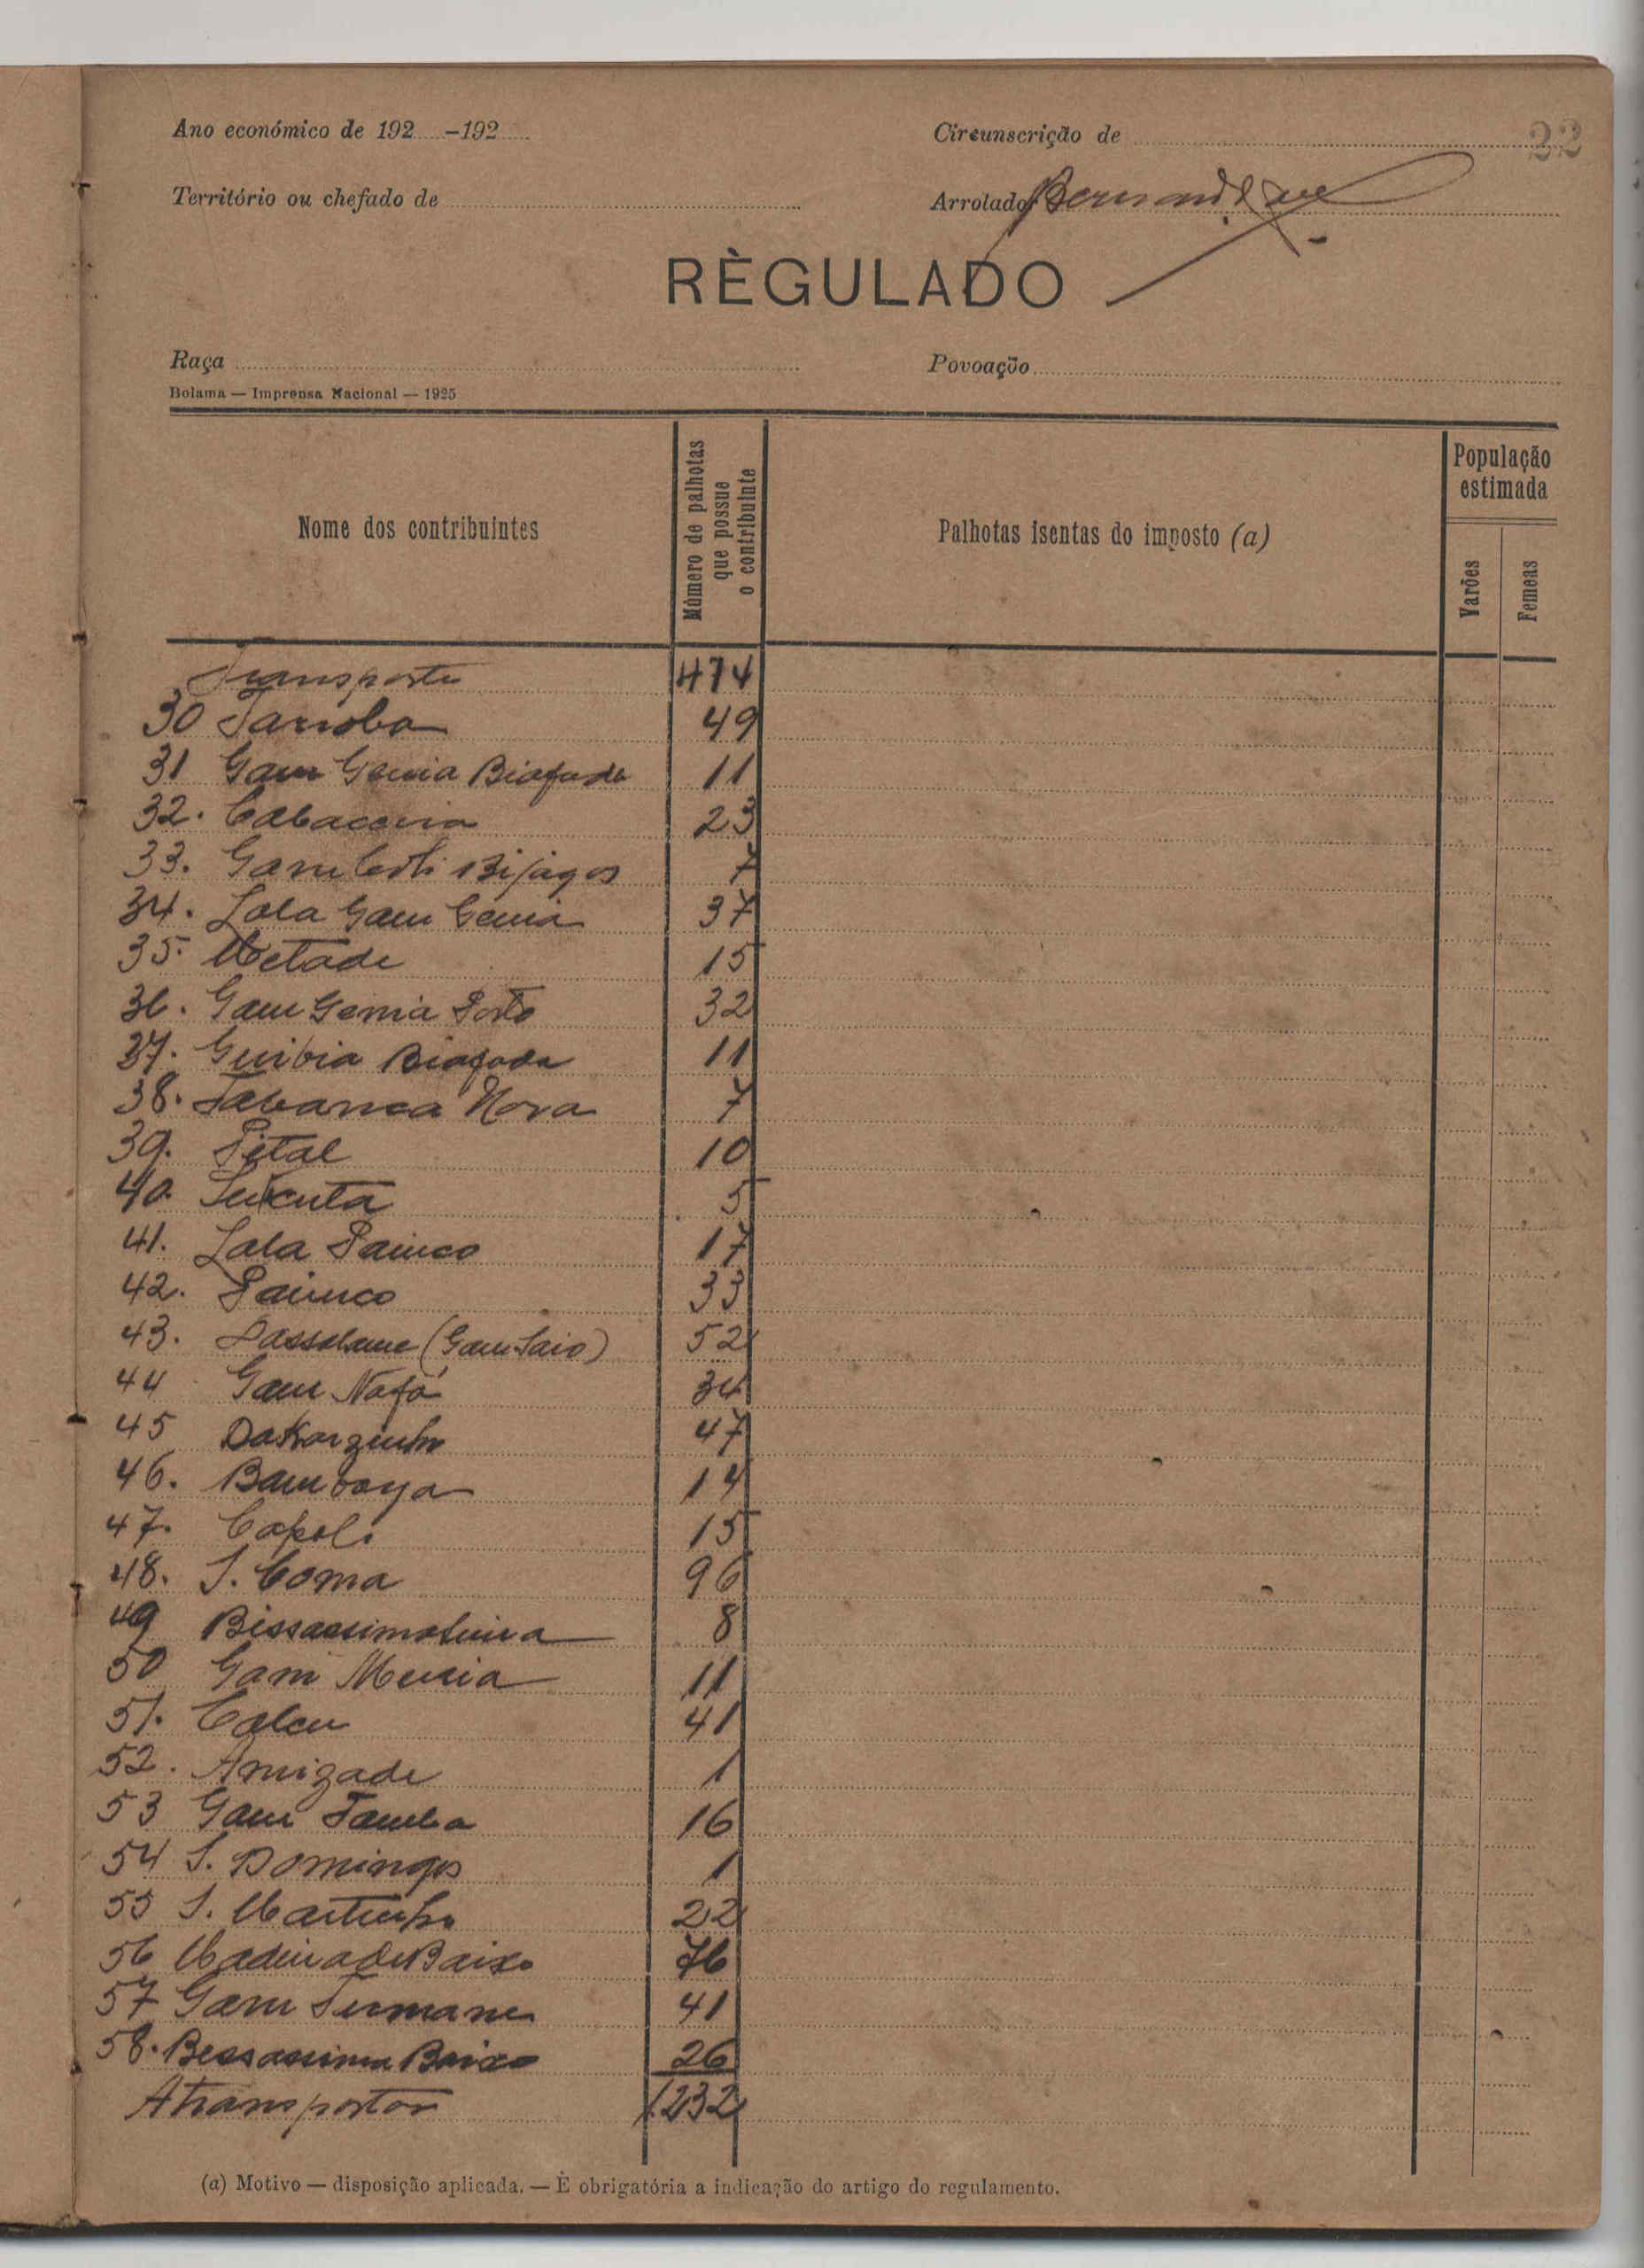 Ano económico de 192 -192
Circunscrição de
22
Território ou chefado de
Arrolador
RÈGULADO
Raça
Povoação
Bolama — Imprensa Nacional — 1925
Nome dos contribuintes
Número de palhotas que possue o contribuinte
Palhotas isentas do imposto (a)
População estimada
Varões
Femeas
Transporte 474
30 49
31 Gam Genia Biafada 11
32. Cabaceira 23
33. Gam Bijagos 7
34. Lala Gam Genia 37
35. Metade 15
36. Gam Genia Porto 32
37. Guibia Biafada 11
38. Tabanca Nova 7
39. Pital 10
40. 5
41. Lala Bainco 17
42. Bainco 33
43. (Gam Saio) 52
44 Gam Nafá 34
45 Dakarzinho 47
46. Bamboya 14
47. Capoli 15
48. S. Coma 96
49 8
50 Gam Muria 11
51. Calcu 41
52. Amizade 1
53 Gam Tamba 16
54 S. Domingos 1
55 S. Martinho 22
56 Madina de Baixo 76
57 Gam Turmane 41
58. Bessassima Baixo 26
A transportar 1232
(a) Motivo — disposição aplicada. — È obrigatória a indicação do artigo do regulamento.